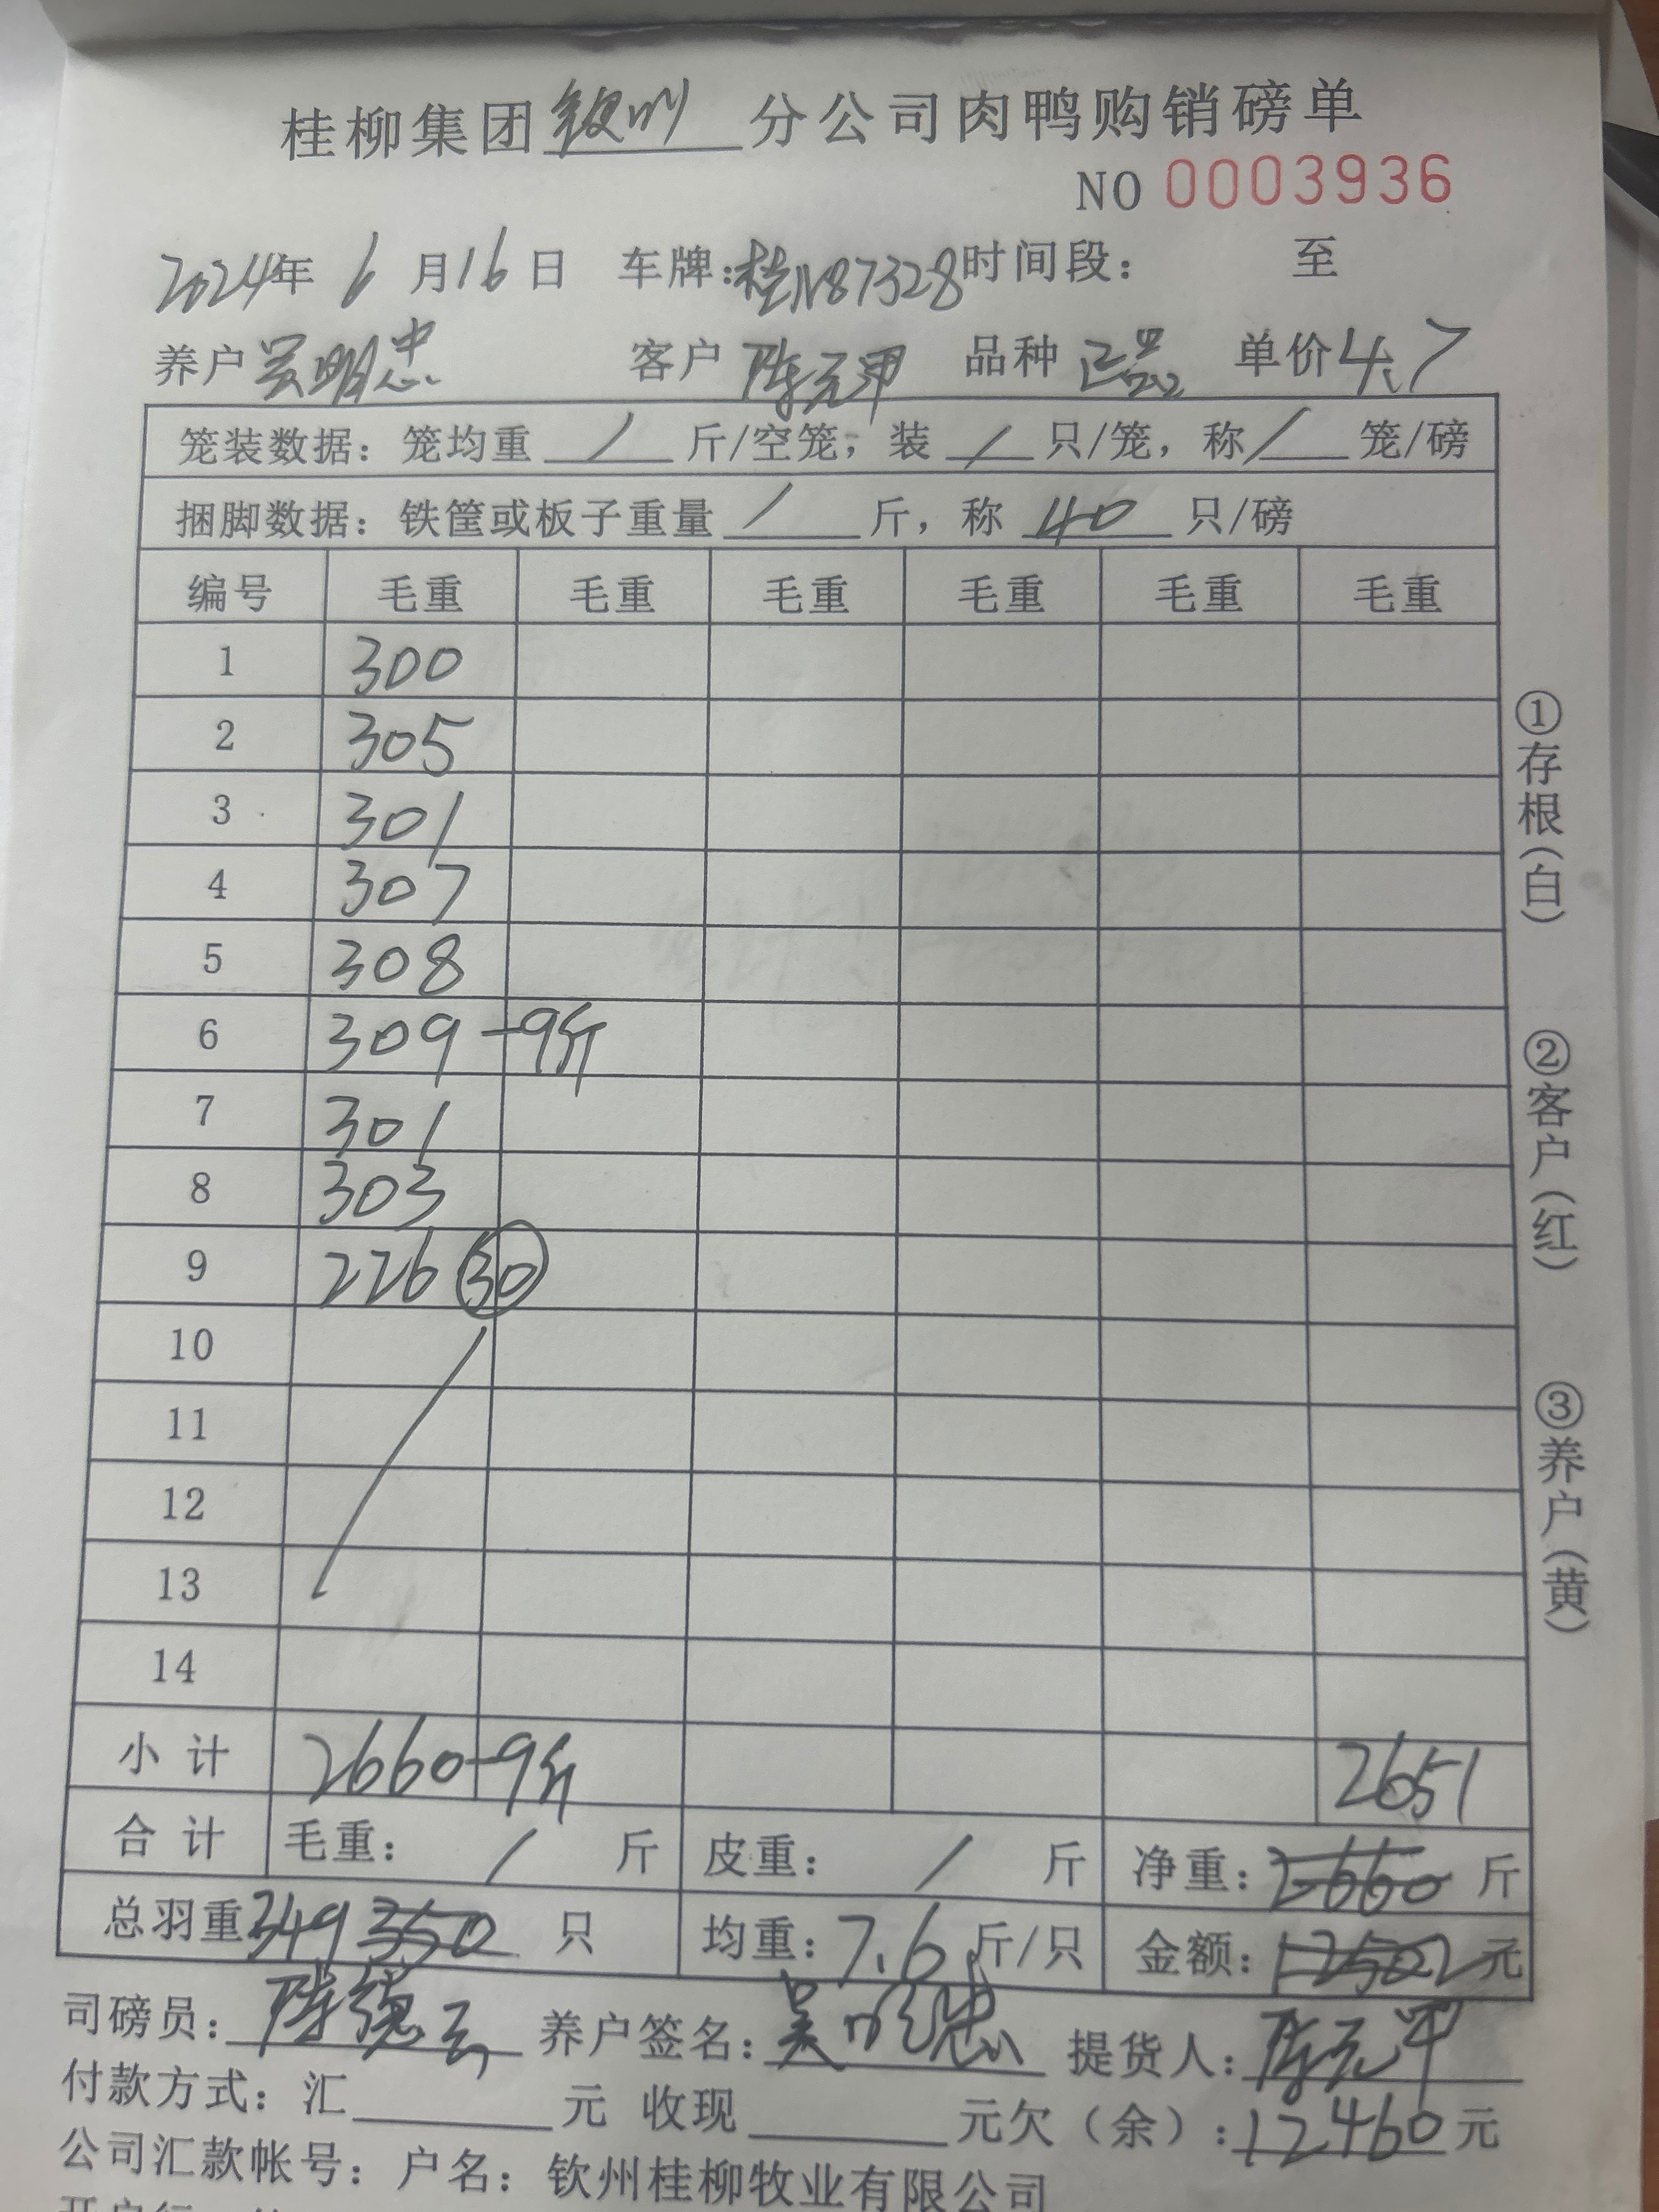 桂柳集团钦州分公司肉鸭购销磅单
NO 0003936
2024年 6 月16日 车牌:桂N87328时间段: 至
养户吴明忠 客户陈元甲 品种正品 单价4.7
笼装数据:笼均重 / 斤/空笼,装 / 只/笼,称 / 笼/磅
捆脚数据:铁筐或板子重量 / 斤,称 40 只/磅
编号 毛重 毛重 毛重 毛重 毛重 毛重
1 300
2 305
3 301
4 307
5 308
6 309 -9斤
7 301
8 303
9 226 30
10
11
12
13
14
小 计 2660-9斤 2651
合 计 毛重: / 斤 皮重: / 斤 净重:2660 斤
总羽重349 350 只 均重:7.6斤/只 金额:12502元
司磅员:陈德云 养户签名:吴明忠 提货人:陈元甲
付款方式:汇 元 收现 元欠(余):12460元
公司汇款帐号:户名:钦州桂柳牧业有限公司
①存根(白)
②客户(红)
③养户(黄)